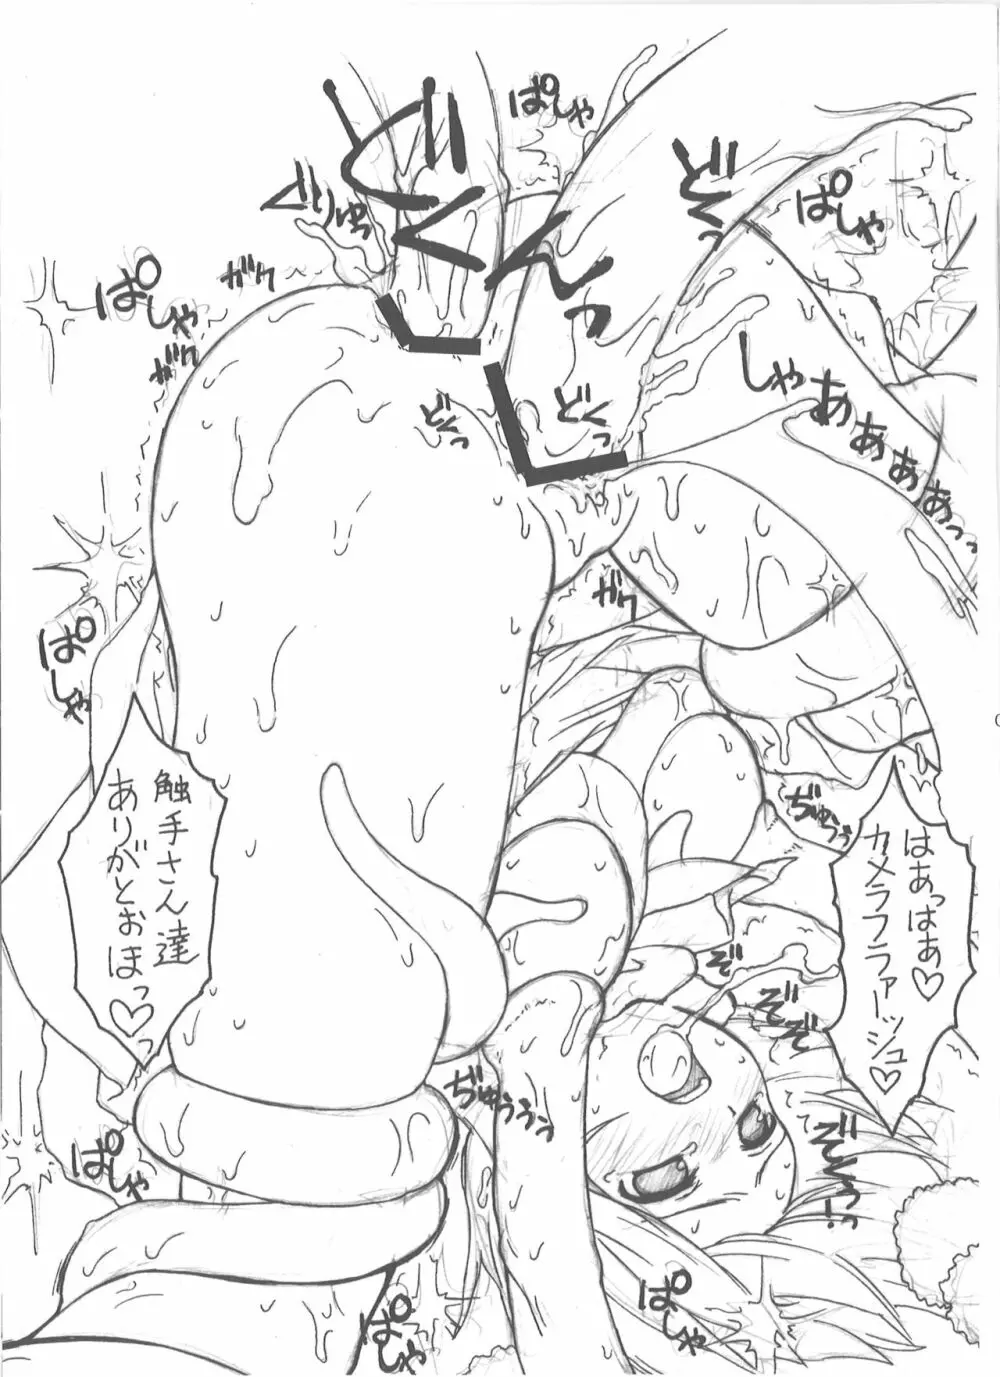 ぱしゃ
どぞんっ
どぞっ
ぱしゃ
ぐりゅっ
ガク
ぱしゃ
ガク
しゃあああああっっ
どくっ
どくっ
ガク
ぱしゃ
はあっはあ♡
カメラフラァーッシュ♡
ぢゅうぅ
触手さん達
ありがとおほっ♡っ
ぞぞ
ぞぞぞ
ぢゅううぅ
ぱしゃ
ぱしゃ
ぱしゃ